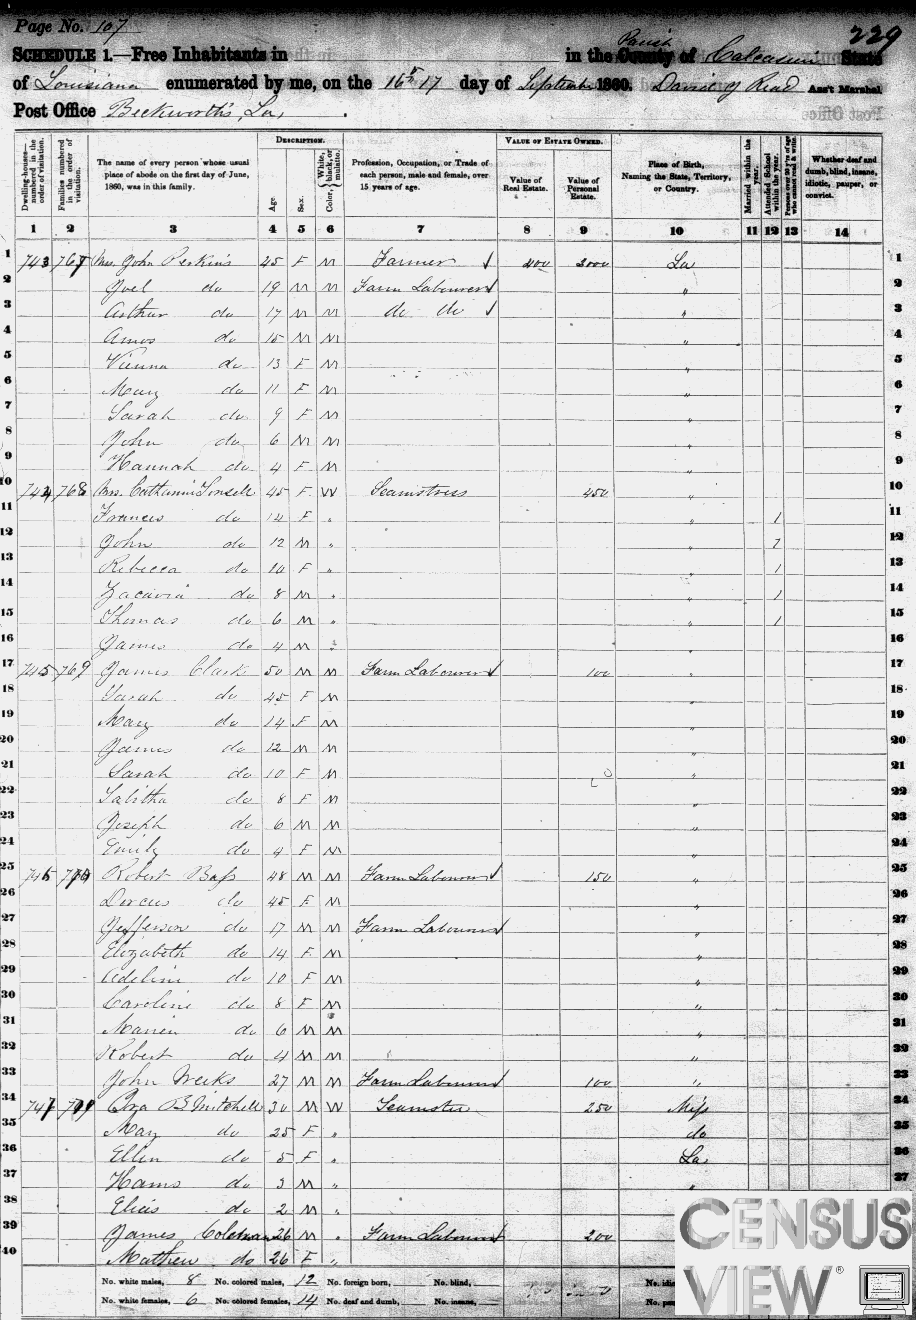 Page No. 107
229
SCHEDULE 1.—Free Inhabitants in in the County Parish of Calcasieu State
of Louisiana enumerated by me, on the 16 & 17 day of September 1860. David J Read Ass't Marshal
Post Office Beckworth's, La,
Dwelling-houses—numbered in the order of visitation.
Families numbered in the order of visitation.
The name of every person whose usual place of abode on the first day of June, 1860, was in this family.
DESCRIPTION.
Age.
Sex.
Color, White, black, or mulatto.
Profession, Occupation, or Trade of each person, male and female, over 15 years of age.
VALUE OF ESTATE OWNED.
Value of Real Estate.
Value of Personal Estate.
Place of Birth, Naming the State, Territory, or Country.
Married within the year.
Attended School within the year.
Persons over 20 y'rs of age who cannot read & write.
Whether deaf and dumb, blind, insane, idiotic, pauper, or convict.
1 2 3 4 5 6 7 8 9 10 11 12 13 14
1 743 767 Mrs. John Perkins 45 F M Farmer 400 3000 La 1
2 Joel do 19 M M Farm Labourer " 2
3 Arthur do 17 M M do do " 3
4 Amos do 15 M M " 4
5 Vienna do 13 F M " 5
6 Mary do 11 F M " 6
7 Sarah do 9 F M " 7
8 John do 6 M M " 8
9 Hannah do 4 F M " 9
10 744 768 Mrs. Catharine 45 F W Seamstress 450 " 10
11 Frances do 14 F " " 1 11
12 John do 12 M " " 1 12
13 Rebecca do 10 F " " 1 13
14 do 8 M " " 1 14
15 Thomas do 6 M " " 1 15
16 James do 4 M " " 16
17 745 769 James Clark 50 M M Farm Labourer 100 " 17
18 Sarah do 45 F M " 18
19 Mary do 14 F M " 19
20 James do 12 M M " 20
21 Sarah do 10 F M " 21
22 Tabitha do 8 F M " 22
23 Joseph do 6 M M " 23
24 Emily do 4 F M " 24
25 746 770 Robert Bass 48 M M Farm Labourer 150 " 25
26 Dorcus do 45 F M " 26
27 Jefferson do 17 M M Farm Labourer " 27
28 Elizabeth do 14 F M " 28
29 Adeline do 10 F M " 29
30 Caroline do 8 F M " 30
31 do 6 M M " 31
32 Robert do 4 M M " 32
33 John Weeks 27 M M Farm Labourer 100 " 33
34 747 B Mitchell 30 M W Teamster 250 Miss 34
35 Mary do 25 F " do 35
36 Ellen do 5 F " La, 36
37 do 3 M " " 37
38 Elias do 2 M "
39 James Coleman 26 M " Farm Labourer 200
40 do 26 F "
No. white males, 8 No. colored males, 12 No. foreign born, No. blind, No.
No. white females, 6 No. colored females, 14 No. deaf and dumb, No. insane, No.
CENSUS
VIEW®